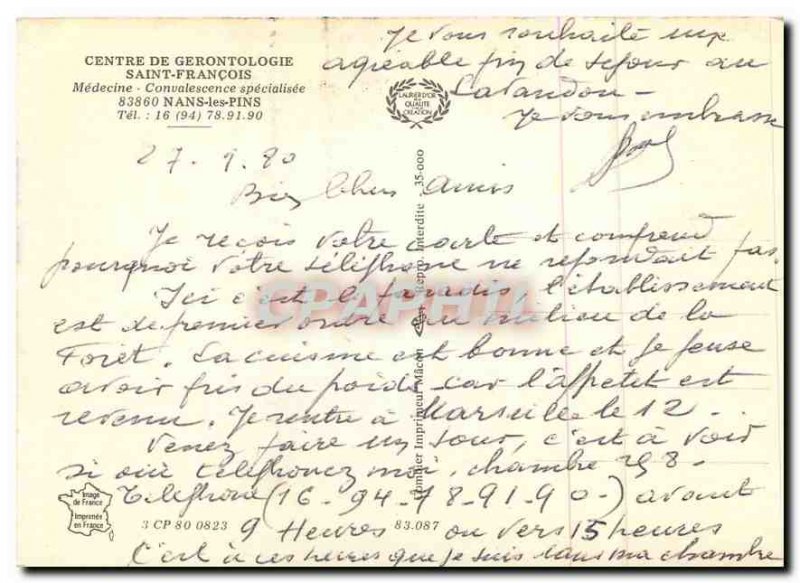 CENTRE DE GERONTOLOGIE
SAINT-FRANÇOIS
Médecine - Convalescence spécialisée
83860 NANS-les-PINS
Tél. : 16 (94) 78.91.90
LAURIER D'OR
DE
QUALITÉ
CRÉATION
27. 9. 80
Bien Chers Amis
Je reçois votre carte et comprend
pourquoi votre téléphone ne repondait pas.
Ici c'est le paradis, l'établissement
est de premier ordre au milieu de la
Foret. La cuisine est bonne et je pense
avoir pris du poids car l'appetit est
revenu. Je rentre à Marseille le 12.
Venez faire un jour, c'est à voir
si oui téléphonez moi, chambre 258-
Téléphone (16-94-78-91-90-) avant
9 Heures ou vers 15 heures
C'est à ces heures que je suis dans ma chambre
Je vous souhaite une
agréable fin de sejour au
Lavandou-
Je vous embrasse
Combier Imprimeur Mâcon
Repro. Interdite 35-000
CPAPHIL
Image
de France
Imprimée
en France
3 CP 80 0823
83.087